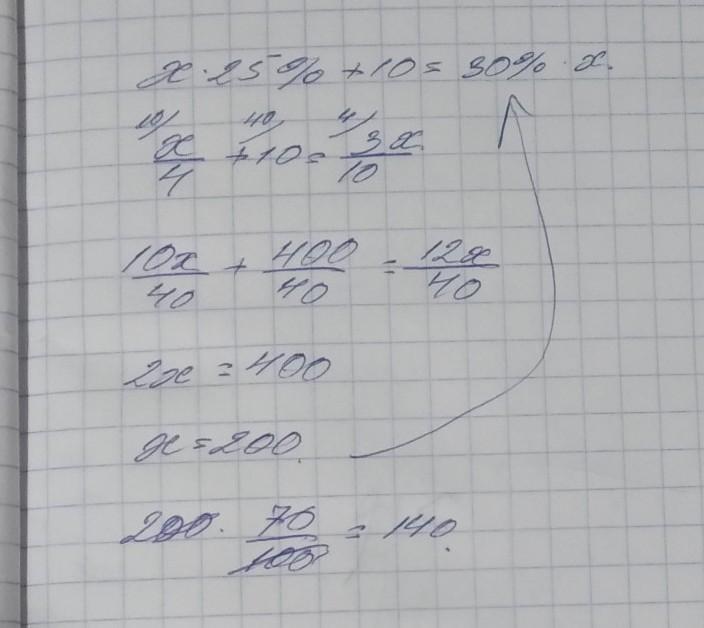 x · 25% + 10 = 30% · x.
10/ 40/ 4/
x/4 + 10 = 3x/10
10x/40 + 400/40 = 12x/40
2x = 400
x = 200.
200 · 70/100 = 140.